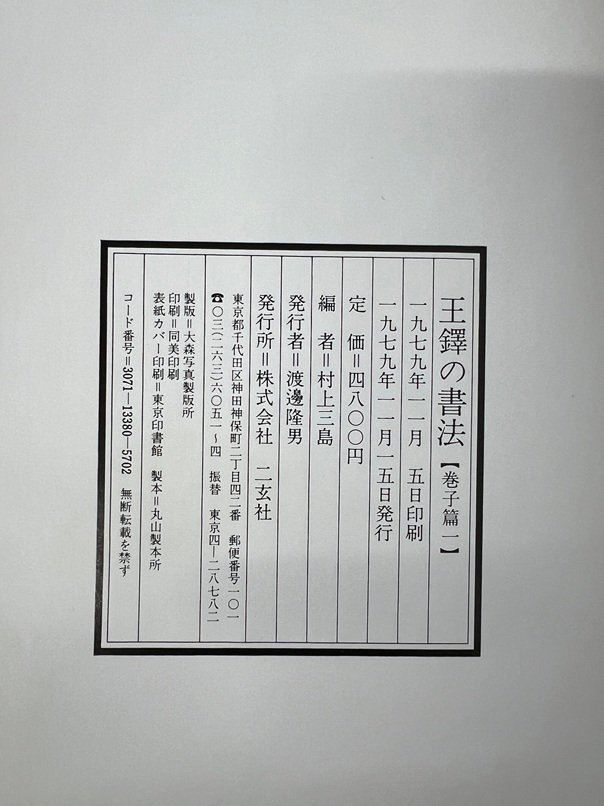 王鐸の書法【巻子篇一】
一九七九年一一月　五日印刷
一九七九年一一月一五日発行
定　価＝四八〇〇円
編　者＝村上三島
発行者＝渡邊隆男
発行所＝株式会社　二玄社
東京都千代田区神田神保町二丁目四二番　郵便番号一〇一
☎〇三（二六三）六〇五一〜四　振替　東京四―二八七八二
製版＝大森写真製版所
印刷＝同美印刷
表紙カバー印刷＝東京印書館　製本＝丸山製本所
コード番号＝3071―13380―5702　無断転載を禁ず